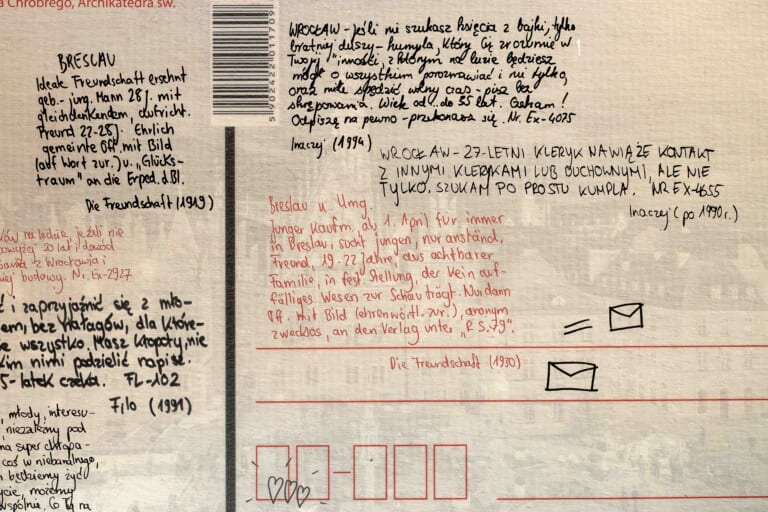 a Chrobrego, Archikatedra św.
5 902422 011709
BRESLAU
Ideale Freundschaft ersehnt
geb. jung. Mann 28 J. mit
gleichdenkendem, aufricht.
Freund 22-28 J. Ehrlich
gemeinte Off. mit Bild
(auf Wort zur.) u. "Glücks-
traum" an die Exped. d. Bl.
Die Freundschaft (1919)
WROCŁAW - Jeśli nie szukasz księcia z bajki, tylko
bratniej duszy - kumpla, który Cię zrozumie w
Twojej "inności, z którym na luzie będziesz
mógł o wszystkim porozmawiać i nie tylko,
oraz mile spędzić wolny czas - pisz bez
skrępowania. Wiek od.. do 35 lat. Czekam!
Odpiszę na pewno - przekonasz się. Nr. Ex-4075
Inaczej (1994)
WROCŁAW - 27-LETNI KLERYK NAWIĄŻE KONTAKT
Z INNYMI KLERYKAMI LUB DUCHOWNYMI, ALE NIE
TYLKO. SZUKAM PO PROSTU KUMPLA. NR EX-4655
Inaczej (po 1990 r.)
Breslau u. Umg.
Junger Kaufm., ab 1. April für immer
in Breslau, sucht jungen, nur anständ.
Freund, 19-22 Jahre, aus achtbarer
Familie, in fest. Stellung, der kein auf-
fälliges Wesen zur Schau trägt. Nur dann
Off. mit Bild (ehrenwörtl. zur.), anonym
zwecklos, an den Verlag unter "R S. 79".
Die Freundschaft (1930)
ków na lodzie, jeżeli nie
powyżej 30 lat i dowód
z Wrocławia i
niej budowy. Nr. Ex-2927
ć i zaprzyjaźnić się z mło-
em, bez nałogów, dla które-
e wszystko. Masz kłopoty, nie
kim nimi podzielić napisz.
5-latek czeka. FL-102
Filo (1991)
, młody, interesu-
niezależny pod
na super chłopa-
coś w niebanalnego,
będziemy żyć
ycie, możemy
wspólnie. Co Ty na